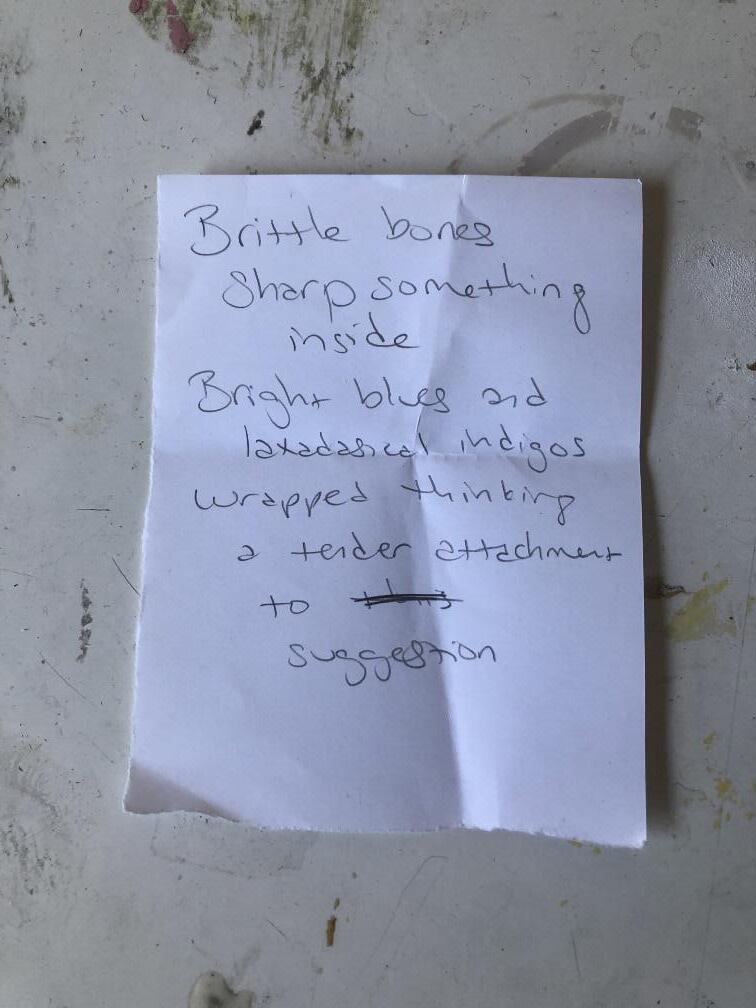 Brittle bones
Sharp something
inside
Bright blues and
laxadasical indigos
wrapped thinking
a tender attachment
to
suggestion